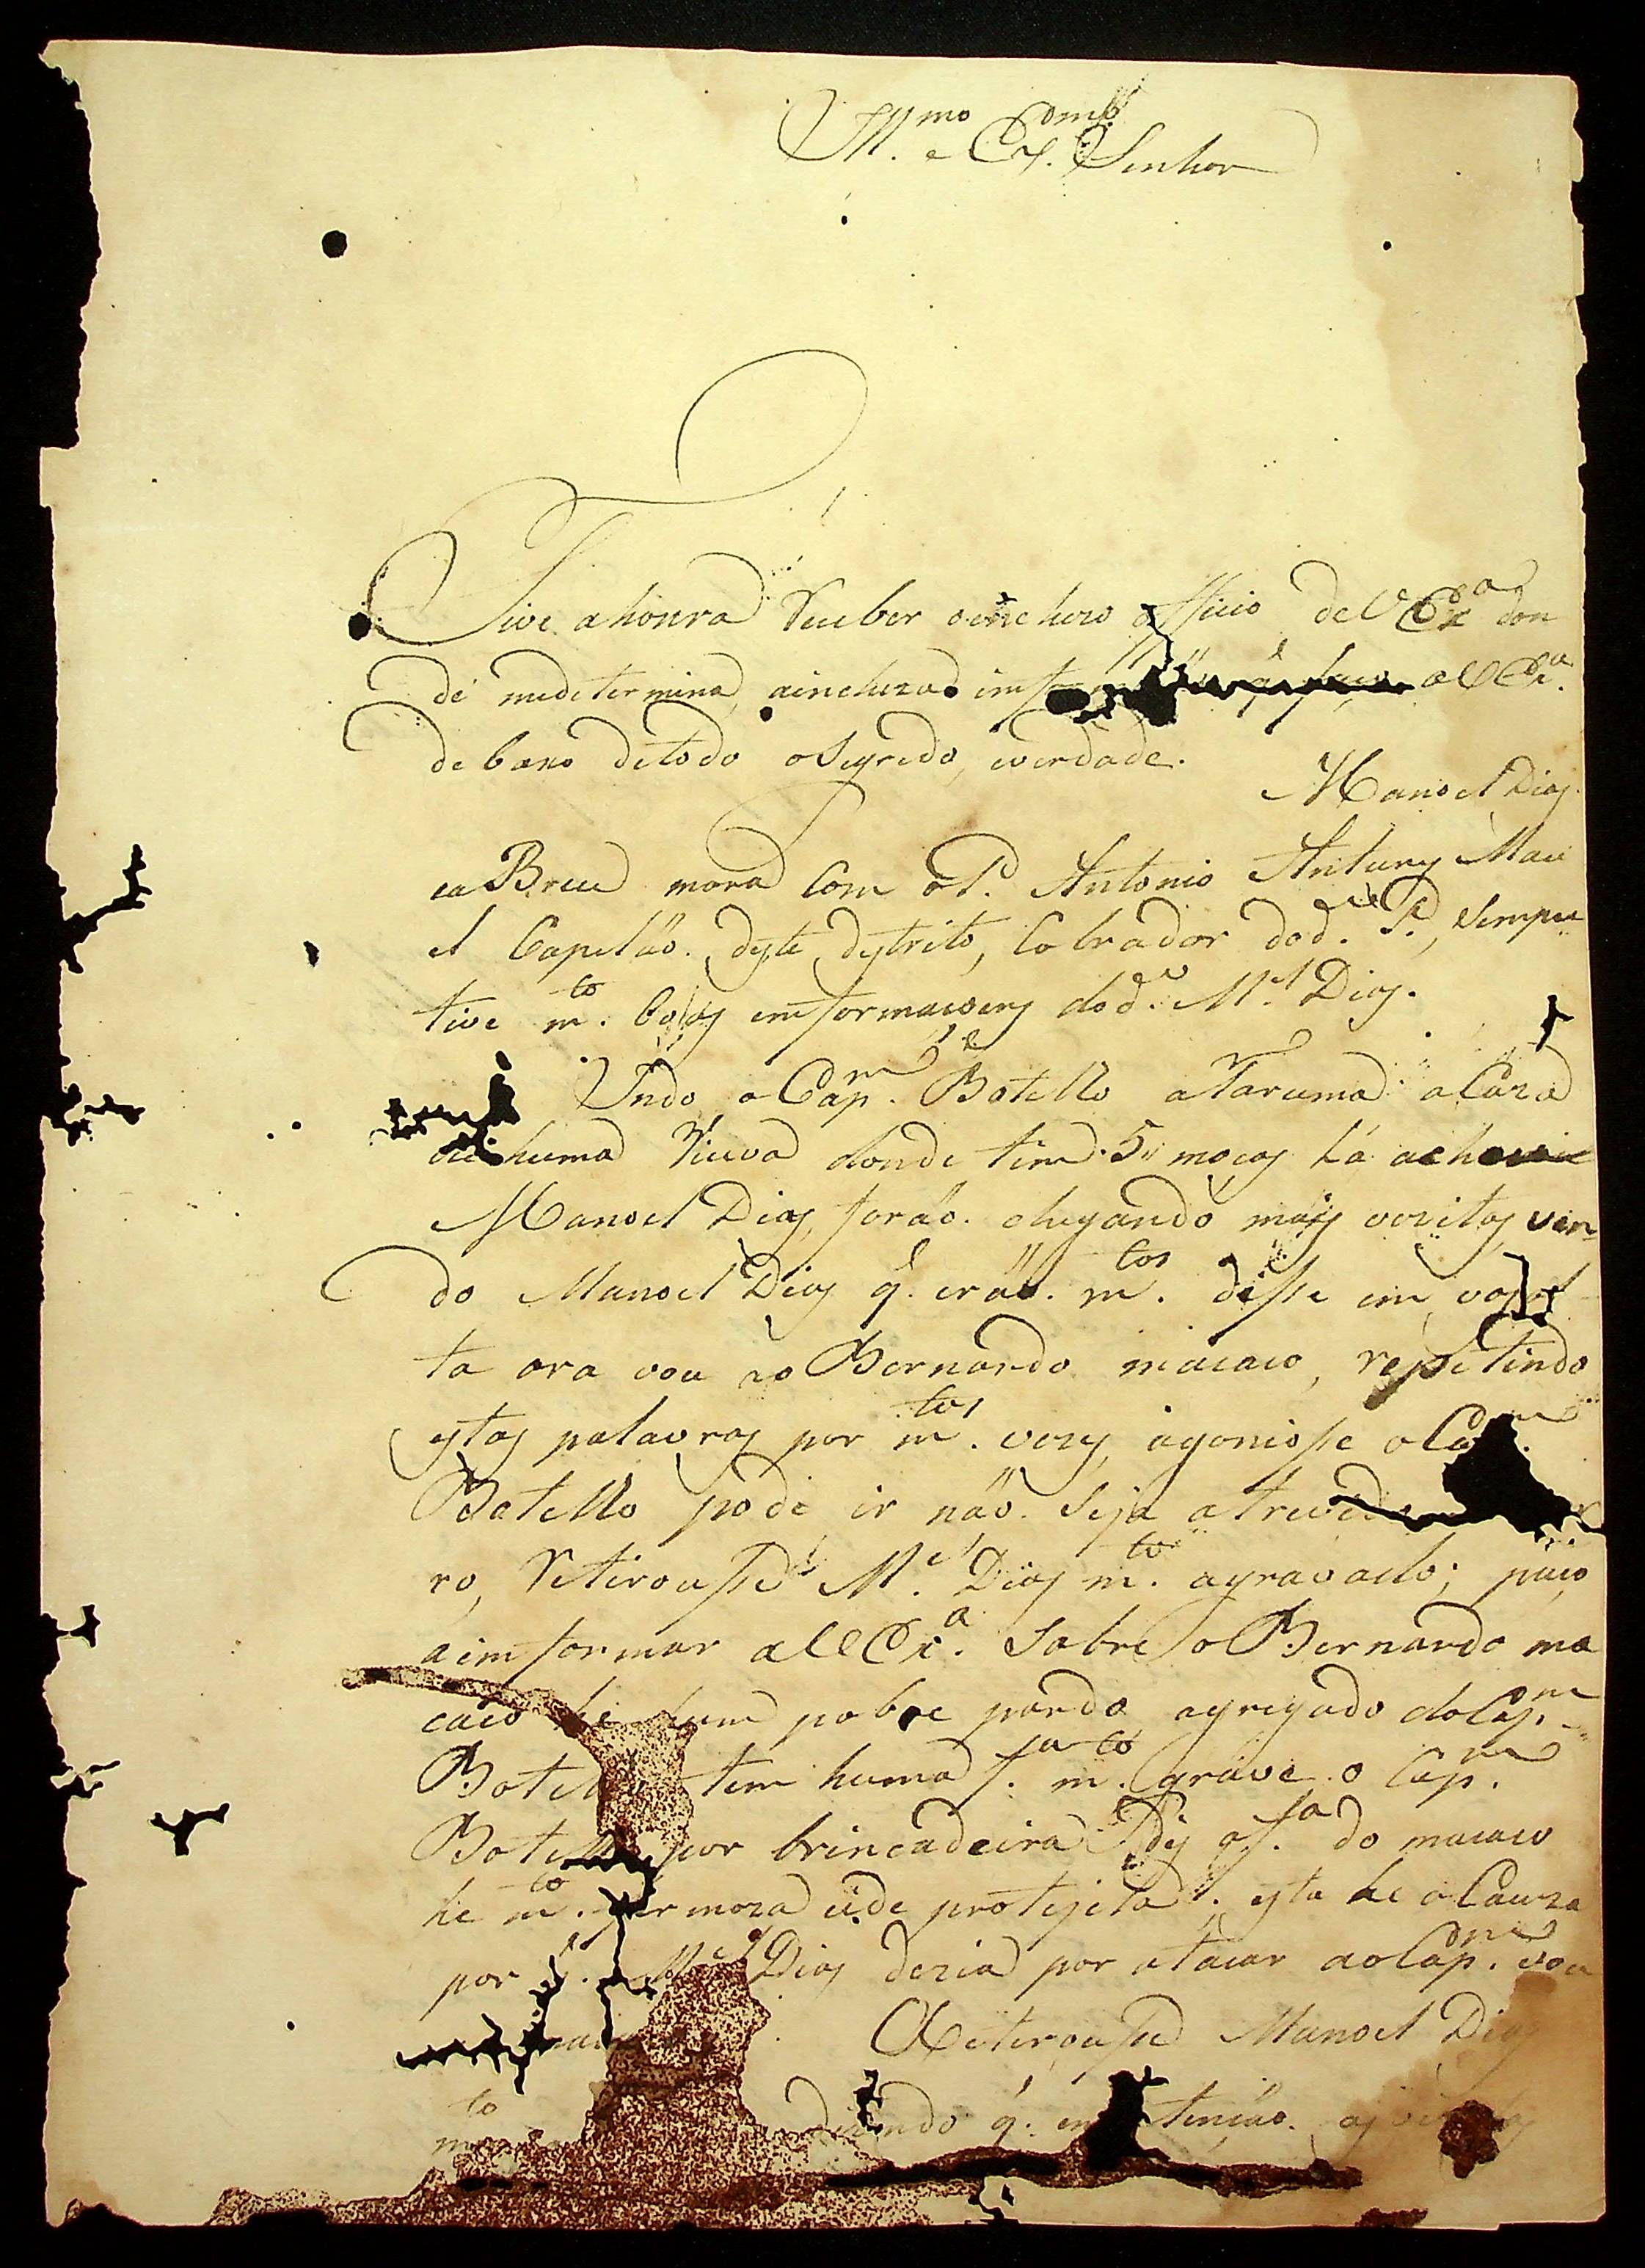 Ill.mo e Ex.mo Senhor
Tive ahonra Receber oincluzo officio deVEx.a don
de medetermina, aincluzao imfor aVEx.a
debaxo detodo oSegredo, everdade.
Manoel Dias
eaBreu mora Com oP. Antonio Antunes Maci
el Capelão. deste destrito, Cobrador dod.o P.e, Sempre
tive m.to boas emformacoens dod.o M.el Dias.
Indo oCap.m Botelho aTaruma. aCaza
de huma Viuva donde tem 5,, moças lá achou
Manoel Dias, forão. chegando mais vezitas, ven
do Manoel Dias q. erão. m.tos disse em vozal
ta ora vou ao Bernardo macaco, repetindo
estas palavras por m.tos vezes, agoniosse oCap.m
Botelho pode ir não. Seja atrevid
ro, Retirousse M.el Dias m.to agravado; paço
aimformar aVEx.a Sobre oBernardo ma
caco he hum pobre pardo agregado doCap.m
Botelho tem huma f.a m.to grave o Cap.m
Botelho por brincadeira Dis af.a do macaco
he m.to fermoza ede protegela. esta he aCauza
por q. M.el Dias dezia por atacar aoCap.m vou
Retirousse Manoel Dias
m.to dizendo q. em tenção. as